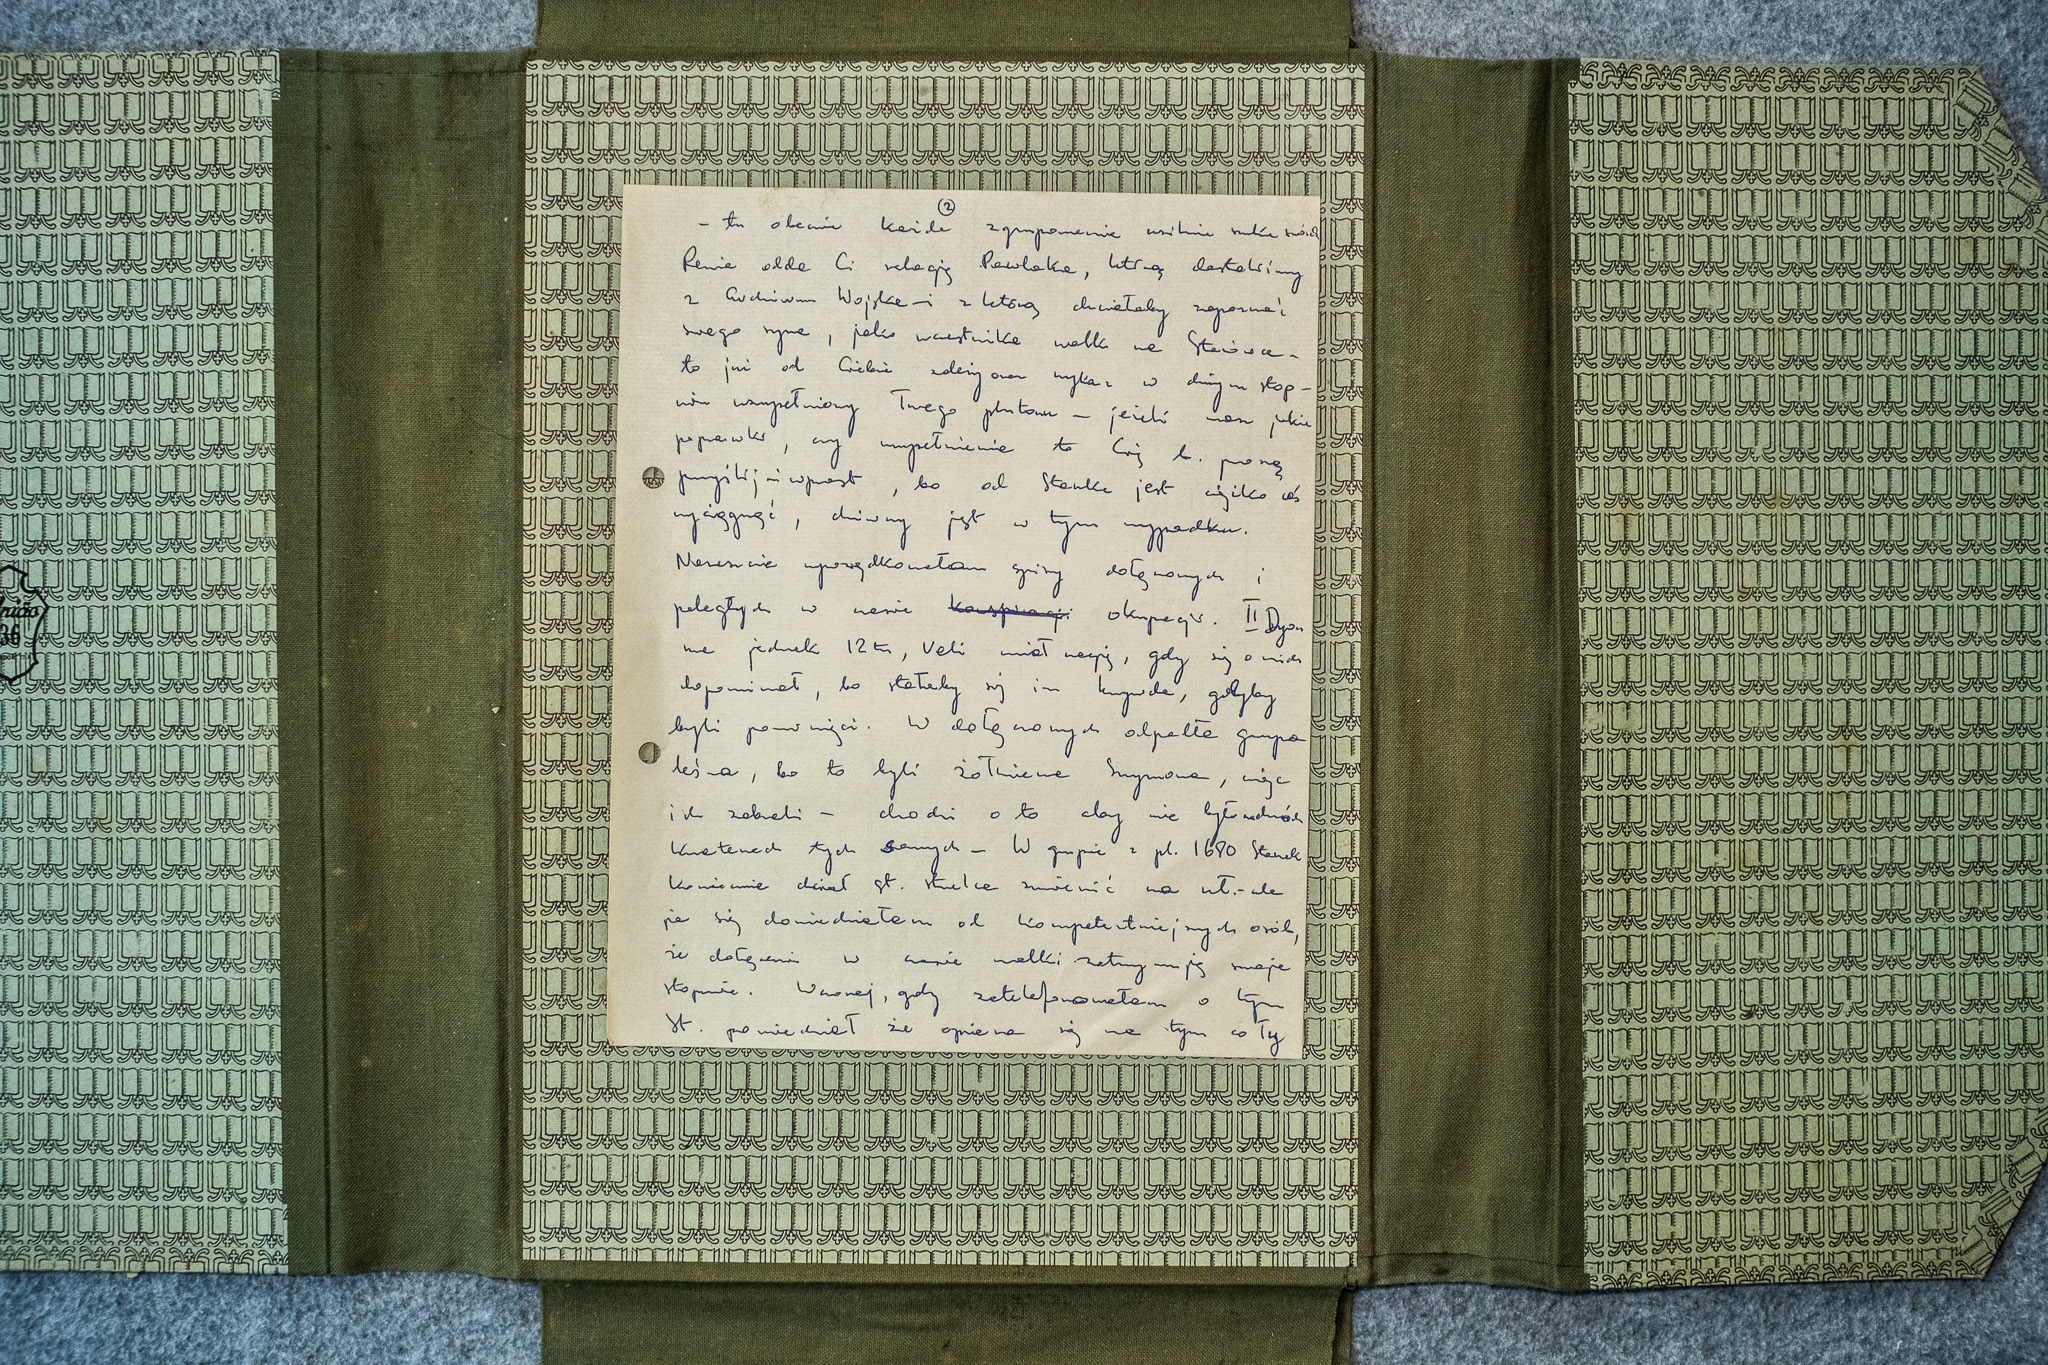 ②
- tu obecnie każde zgrupowanie usilnie szuka swoich
Renia odda Ci relację Pawlaka, którą dostaliśmy
z Archiwum Wojska - i z którą chciałaby zapoznać
swego syna, jako uczestnika walk na Starówce -
to już od Ciebie zależy oraz wykaz w dużym stop-
niu uzupełniony Twego plutonu - jeżeli masz jakieś
poprawki, czy uzupełnienie to Cię b. proszę
przyślij mi wprost, bo od Stanka jest ciężko coś
wyciągnąć, dziwny jest w tym wypadku.
Nareszcie uporządkowałam spisy dołączonych i
poległych w czasie konspiracji okupacji. II Dyon
ma jednak 12tu, Veli miał rację, gdy się o nich
dopominał, bo stałaby się im krzywda, gdyby
byli pominięci. W dołączonych odpadła grupa
leśna, bo to byli żołnierze Szymona, więc
ich zabrali - chodzi o to aby nie było w dwóch
kwaterach tych samych - W grupie z pl. 1680 Stanek
koniecznie chciał st. strzelca zmienić na uł. - ale
ja się dowiedziałam od kompetentniejszych osób,
że dołączeni w czasie walki zatrzymują swoje
stopnie. Wczoraj, gdy zatelefonowałam o tym
St. powiedział że opiera się na tym co Ty
36